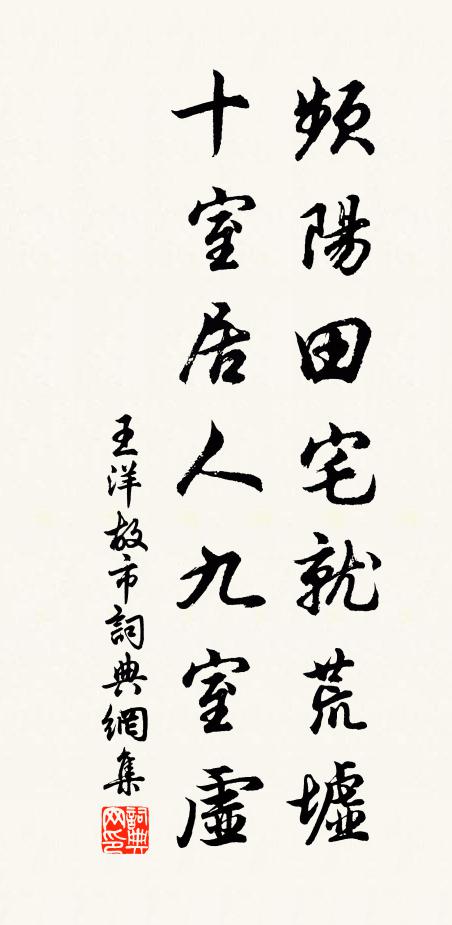 頻陽田宅就荒墟
十室居人九室虛
王洋故市詞典網集
詞典网印